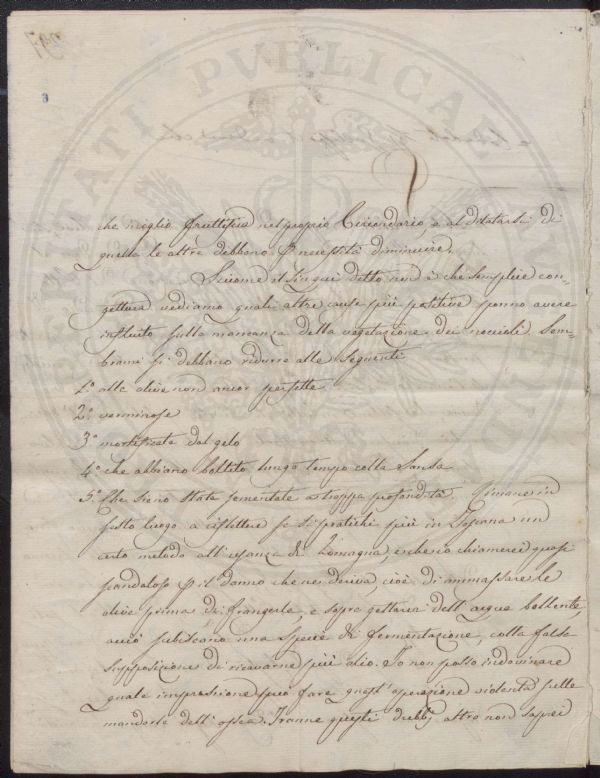 PROSPERITATI PVBLICAE AVG
che meglio fruttifica nel proprio Circondario e al dilatarsi di
quella le altre debbono p necessità diminuire.
Siccome il sin qui detto non è che semplice con-
gettura vediamo quali altre cause più positive ponno avere
influito sulla mancanza della vegetazione dei noccioli. Sem-
brami si debbano ridurre alle seguenti
1.° alle olive non ancor perfette
2.° verminose
3.° mortificate dal gelo
4.° che abbiano bollito lungo tempo colla Sansa
5.° Che sieno state sementate a troppa profondità. Rimane in
fatto luogo a riflettere se si pratichi più in Toscana un
certo metodo all'usanza di Romagna, e che io chiamerei quasi
scandaloso p il danno che ne deriva, cioè di ammassare le
olive prima di frangerle, e sopra gettarvi dell'acqua bollente,
acciò subiscano una specie di fermentazione, colla falsa
supposizione di ricavarne più olio. Io non posso indovinare
quale impressione può fare quest'operazione violenta sulle
mandorle dell'ossea. Tranne questi dubbj altro non saprei